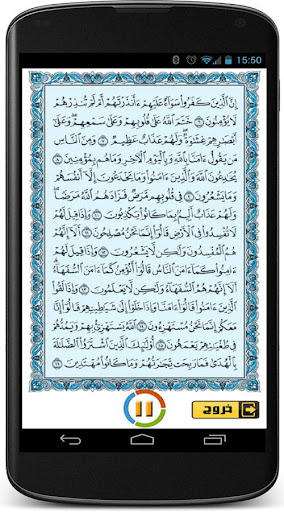 15:50
إِنَّ ٱلَّذِينَ كَفَرُوا۟ سَوَآءٌ عَلَيْهِمْ ءَأَنذَرْتَهُمْ أَمْ لَمْ تُنذِرْهُمْ
لَا يُؤْمِنُونَ ٦ خَتَمَ ٱللَّهُ عَلَىٰ قُلُوبِهِمْ وَعَلَىٰ سَمْعِهِمْ ۖ وَعَلَىٰٓ
أَبْصَٰرِهِمْ غِشَٰوَةٌ ۖ وَلَهُمْ عَذَابٌ عَظِيمٌ ٧ وَمِنَ ٱلنَّاسِ
مَن يَقُولُ ءَامَنَّا بِٱللَّهِ وَبِٱلْيَوْمِ ٱلْءَاخِرِ وَمَا هُم بِمُؤْمِنِينَ ٨
يُخَٰدِعُونَ ٱللَّهَ وَٱلَّذِينَ ءَامَنُوا۟ وَمَا يَخْدَعُونَ إِلَّآ أَنفُسَهُمْ
وَمَا يَشْعُرُونَ ٩ فِى قُلُوبِهِم مَّرَضٌ فَزَادَهُمُ ٱللَّهُ مَرَضًا ۖ
وَلَهُمْ عَذَابٌ أَلِيمٌۢ بِمَا كَانُوا۟ يَكْذِبُونَ ١٠ وَإِذَا قِيلَ لَهُمْ
لَا تُفْسِدُوا۟ فِى ٱلْأَرْضِ قَالُوٓا۟ إِنَّمَا نَحْنُ مُصْلِحُونَ ١١ أَلَآ إِنَّهُمْ
هُمُ ٱلْمُفْسِدُونَ وَلَٰكِن لَّا يَشْعُرُونَ ١٢ وَإِذَا قِيلَ لَهُمْ
ءَامِنُوا۟ كَمَآ ءَامَنَ ٱلنَّاسُ قَالُوٓا۟ أَنُؤْمِنُ كَمَآ ءَامَنَ ٱلسُّفَهَآءُ ۗ
أَلَآ إِنَّهُمْ هُمُ ٱلسُّفَهَآءُ وَلَٰكِن لَّا يَعْلَمُونَ ١٣ وَإِذَا لَقُوا۟
ٱلَّذِينَ ءَامَنُوا۟ قَالُوٓا۟ ءَامَنَّا وَإِذَا خَلَوْا۟ إِلَىٰ شَيَٰطِينِهِمْ قَالُوٓا۟ إِنَّا
مَعَكُمْ إِنَّمَا نَحْنُ مُسْتَهْزِءُونَ ١٤ ٱللَّهُ يَسْتَهْزِئُ بِهِمْ وَيَمُدُّهُمْ
فِى طُغْيَٰنِهِمْ يَعْمَهُونَ ١٥ أُو۟لَٰٓئِكَ ٱلَّذِينَ ٱشْتَرَوُا۟ ٱلضَّلَٰلَةَ
بِٱلْهُدَىٰ فَمَا رَبِحَت تِّجَٰرَتُهُمْ وَمَا كَانُوا۟ مُهْتَدِينَ ١٦
خروج